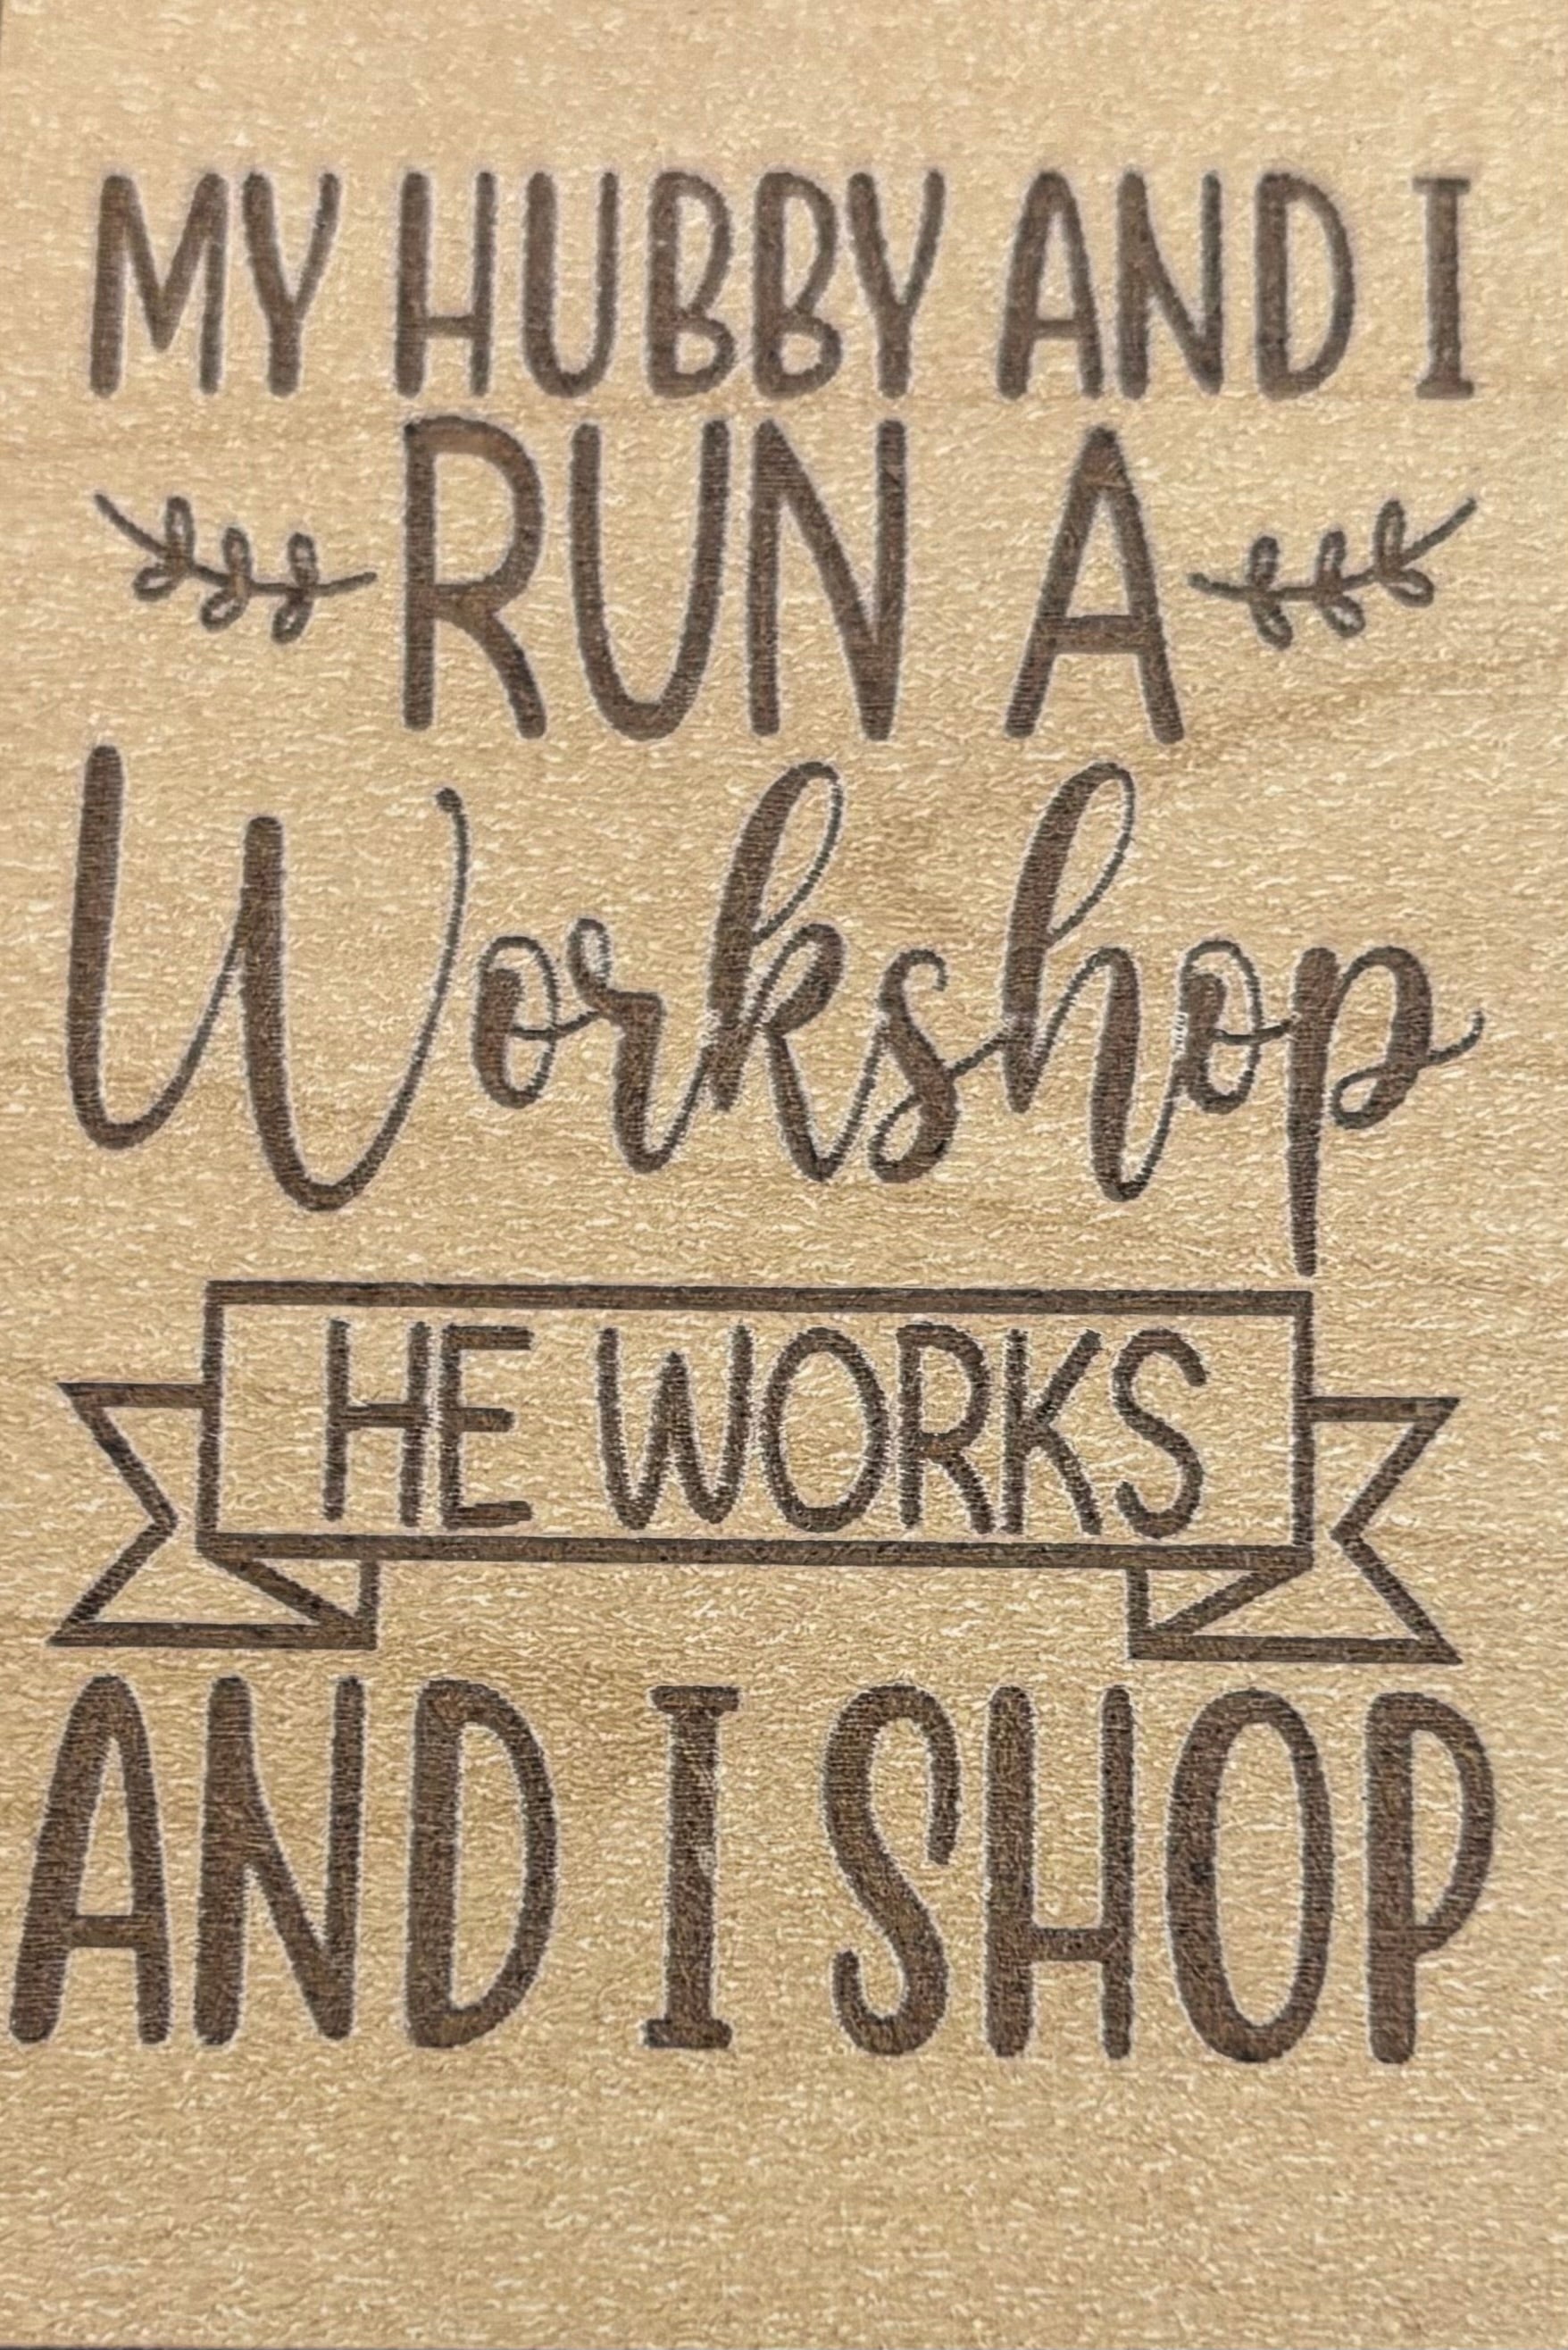 MY HUBBY AND I
RUN A
Workshop
HE WORKS
AND I SHOP